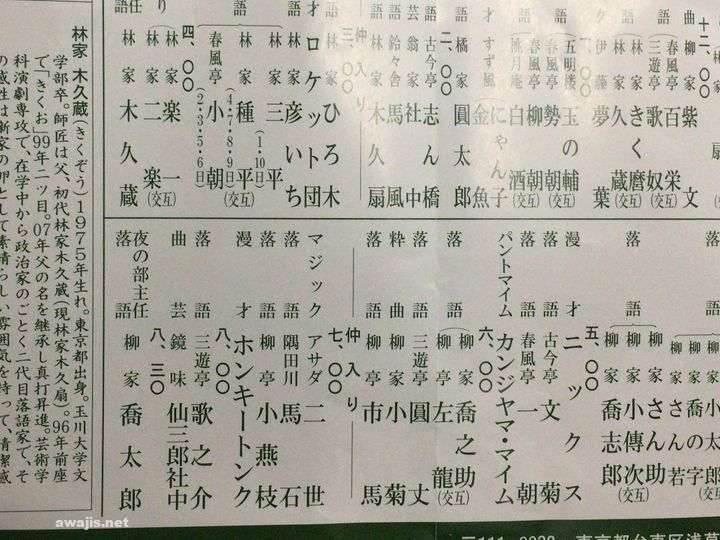 十二・〇〇
曲 柳家 紫文
春風亭 百栄(交互)
三遊亭 歌奴
語 林家 きく麿(交互)
林家 久蔵
伊藤 夢葉
一・〇〇
五明楼 玉の輔
春風亭 勢朝(交互)
語 春風亭 柳朝
桃月庵 白酒(交互)
にゃん子
才 すず風 金魚
語 橘家 圓太郎
二・〇〇
語 古今亭 志ん橋
芸 翁家 社中
語 鈴々舎 馬風
語 林家 木久扇
仲入り
三・〇〇
語 林家 ひろ木
才 ロケット団
語 林家 彦いち
林家 三平(1・10日)
語 林家 種平(4・7・8・9日)(交互)
春風亭 小朝(2・3・5・6日)
四・〇〇
林家 楽一
り 林家 二楽(交互)
任
語 林家 木久蔵
太郎
柳家 喬の字
柳家 さん若
柳家 さん助
落語 柳家 小傳次(交互)
柳家 喬志郎
五・〇〇
漫才 ニックス
落語 古今亭 文菊
落語 春風亭 一朝
パントマイム カンジヤマ・マイム
六・〇〇
落語 柳家 喬之助
柳亭 左龍(交互)
落語 三遊亭 圓丈
粋曲 柳家 小菊
落語 柳亭 市馬
仲入り
七・〇〇
マジック アサダ二世
落語 隅田川 馬石
落語 柳亭 小燕枝
漫才 ホンキートンク
八・〇〇
落語 三遊亭 歌之介
曲芸 鏡味 仙三郎社中
八・三〇
夜の部主任
落語 柳家 喬太郎
林家 木久蔵(きくぞう)1975年生れ。東京都出身。玉川大学文
学部卒。師匠は父、初代林家木久蔵(現林家木久扇)。96年前座
で「きくお」99年二ツ目。07年父の名を継承し真打昇進。芸術学
科演劇専攻で、在学中から政治家のごとく二代目落語家で、そ
の感性は新家の卵として素晴らしい雰囲気を持って、清潔感
awajis.net